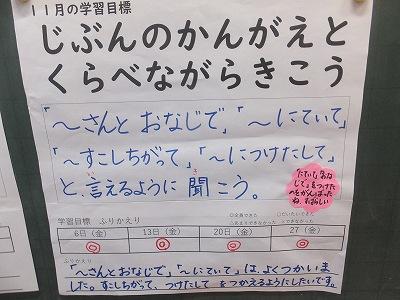 11月の学習目標
じぶんのかんがえと
くらべながらきこう
「～さんと おなじで」「～にていて」
「～すこしちがって」「～につけたして」
と、言えるように 聞こう。
学習目標 ふりかえり
◎全員できた ○だいたいできた
6日(金) 13日(金) 20日(金) 27(金)
◎ ◎ ◎ ◎
ふりかえり
「～さんとおなじで」「～にていて」は、よくつかいま
した。すこしちがって、つけたして をつかえるようにしたいです。